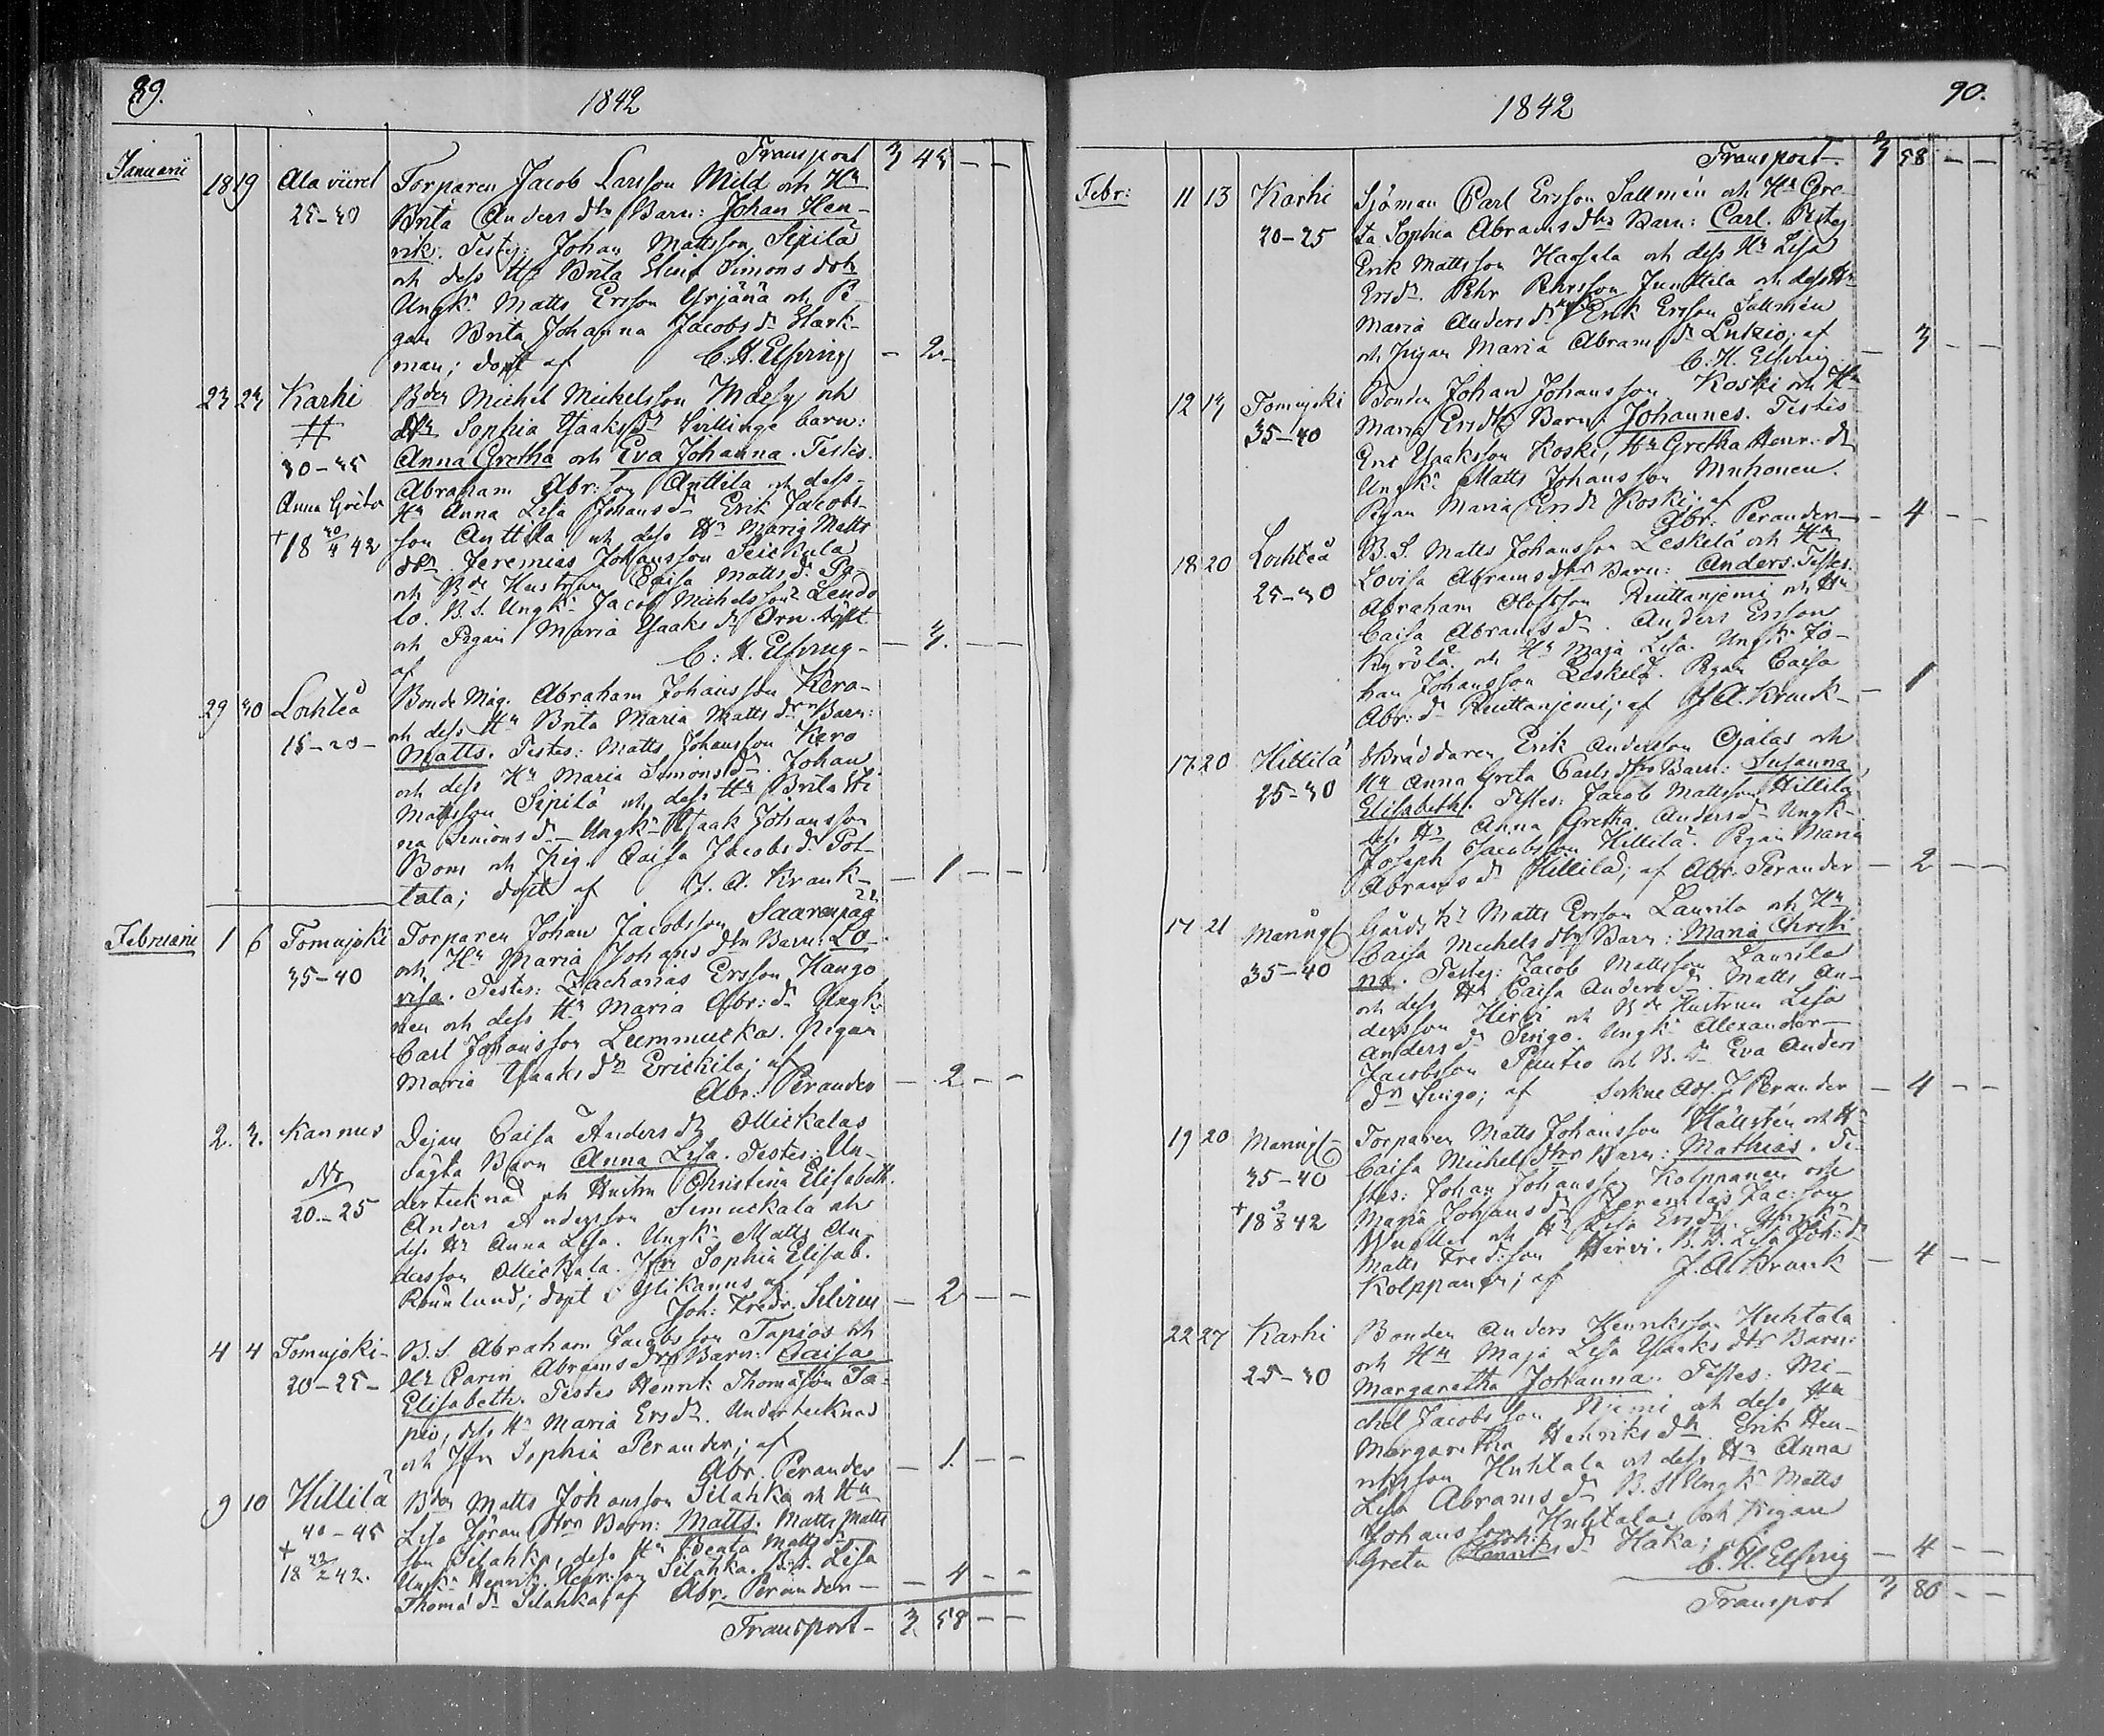 89.
1842
Transport 3 43 — —
Januarii 18 19 Ala viiret Torparen Jacob Larsson Mild och Hu
25–30 Brita Anders dtrs Barn: Johan Hen-
rik. Testes: Johan Mattsson Sipilä
och dess Hu Brita Stina Simons dotr
Ungk. Matts Ersson Yrjänä och Pi-
gan Brita Johanna Jacobs dr Stark-
man; döpt af C. H. Elfving — 2 —
23 23 Karhi Bden Michel Michelsson och
# Hu Sophia Isaaks dr Tvillinge barn:
30–35 Anna Gretha och Eva Johanna. Testes:
Anna Greta Abraham Abr:son Anttila och dess
+ 18 30/4 42 Hu Anna Lisa Johans dr Erik Jacobs-
son Anttila och dess Hu Maria Matts
dr. Jeremias Johansson
och Bde Hustrun Caisa Matts dr Pa-
lo. B.S. Ungk. Jacob Michelsson
och Pigan Maria Isaaks dr Orn. döpt
af C. H. Elfving — 3. — —
29 30 Lochteå Bonde Måg. Abraham Johansson Kero
15–20 – och dess Hu Brita Maria Matts drs Barn:
Matts. Testes: Matts Johansson Kero
och dess Hu Maria Simons dr. Johan
Mattsson Sipilä och dess Hu Brita Sti
na Simons dr Ungk. Isaak Johansson
Bom och Pig. Caisa Jacobs dr Pot-
tala; döpt af J. A. Krank — 1 — —
Februarii 1 6 Tomujoki Torparen Johan Jacobsson Saarenpää
35–40 och Hu Maria Johans dtrs Barn: Lo-
visa. Testes: Zacharias Ersson Kango
nen och dess Hu Maria Abr: dr Ungk.
Carl Johansson Lummucka. Pigan
Maria Isaaks dr Erickila; af
Abr: Perander — 2 — —
2. 3. Kannus Dejan Caisa Anders dr Mickalas
20–25 oägta Barn Anna Lisa. Testes: Un-
dertecknad och Hustru Christina Elisabeth.
Anders Andersson Simuckala och
dess Hu Anna Lisa. Ungk. Matts An-
dersson Mickala. Jfr Sophia Elisab.
Rönnlund; döpt i Ylikanus af
Joh: Fredr. — 2 — —
4 4 Tomujoki – B.S. Abraham Jacobsson Tapios och
20–25 – Hu Carin Abrams drs Barn: Caisa
Elisabeth. Testes Henrik Thomasson Ta-
pio, dess Hu Maria Ers dr. Undertecknad
och Jfr Sophia Perander; af
Abr. Perander — 1. — —
9 10 Hillilä Bden Matts Johansson Silahka och Hu
40–45 Lisa Jöran dtrs Barn: Matts. Matts Matts
+ son Silahka, dess Hu Beata Matts dr
18 22/2 42. Ungk. Henrik Henr:son Silahka. B.d. Lisa
Thoma dr Silahka, af Abr. Perander — — 4 — —
Transport — 3 58 — —
90.
1842
Transport. 3 58 — —
Febr: 11 13 Karhi Sjöman Carl Ersson Sallmén och Hu Gre-
20–25 ta Sophia Abrams dtrs Barn: Carl. Testes:
Erik Mattsson Haapala och dess Hu Lisa
Ers dr. Pehr Pehrsson Junttila och dess Hu
Maria Anders dr Erik Ersson Sallmén
och Pigan Maria Abrams dr Lukio; af
C. H. Elfving — 3 — —
12 13 Tomujoki Bonden Johan Johansson Koski och Hu
35–40 Maria Ers dtrs Barn: Johannes. Testes:
Eric Isaksson Koski, Hu Gretha Henr. dr
Ungk. Matts Johansson Muhonen.
Pigan Maria Ers dr Koski; af
Abr: Perander — 4 — —
18 20 Lochteå B.S. Matts Johansson Leskelä och Hu
25–30 Lovisa Abrams dtrs Barn: Anders. Testes:
Abraham Olofsson Ruittanjemi och Hu
Caisa Abrams dr. Anders Ersson
Kyrölä och Hu Maja Lisa. Ungk. Jo-
han Johansson Leskelä. Pigan Caisa
Abr: dr Ruittanjemi; af J. A. Krank — 1
17 20 Hillilä Skräddaren Erik Andersson Ojalas och
25–30 Hu Anna Greta Carls dtrs Barn: Susanna
Elisabeth. Testes: Jacob Mattsson Hillilä
dess Hu Anna Gretha Anders dr Ungk.
Joseph Jacobsson Hillilä. Pigan Maria
Abrams dr Hillilä; af Abr. Perander — 2 — —
17 21 Maringl Gårds kr Matts Ersson Laurila och Hu
35–40 Caisa Michels dtrs Barn: Maria Christi
na. Testes: Jacob Mattsson Laurila
och dess Hu Caisa Anders dr. Matts An-
dersson Hirvi och Bde Hustrun Lisa
Anders dr Singo. Ungk. Alexander
Jacobsson Puutio och B. dr Eva Anders
dr Singo; af Sockne Adj. J. Perander — 4 — —
19 20 Maringl Torparen Matts Johansson Hällstén och Hu
35–40 Caisa Michels dtrs Barn: Mathias. Te-
+ stes: Johan Johansson Kolppanen och
18 3/8 42 Maria Johans dr Jeremias Jac:son
och Hu Lisa Ers dr. Ungk.
Matts Fred:son Hirvi. B. D. Lisa Joh: dr
Kolppanen; af J. A. Krank — 4 — —
22 27 Karhi Bonden Anders Henriksson Huhtala
25–30 och Hu Maja Lisa Isaaks dtrs Barn:
Margaretha Johanna. Testes: Mi-
chel Jacobsson Niemi och dess Hu
Margaretha Henriks dr. Erik Hen-
riksson Huhtala och dess Hu Anna
Lisa Abrams dr B.S. Ungk. Matts
Johansson Huhtala och Pigan
Greta Henriks dr Haka; af
C. H. Elfving — 4 — —
Transport 3 80 — —